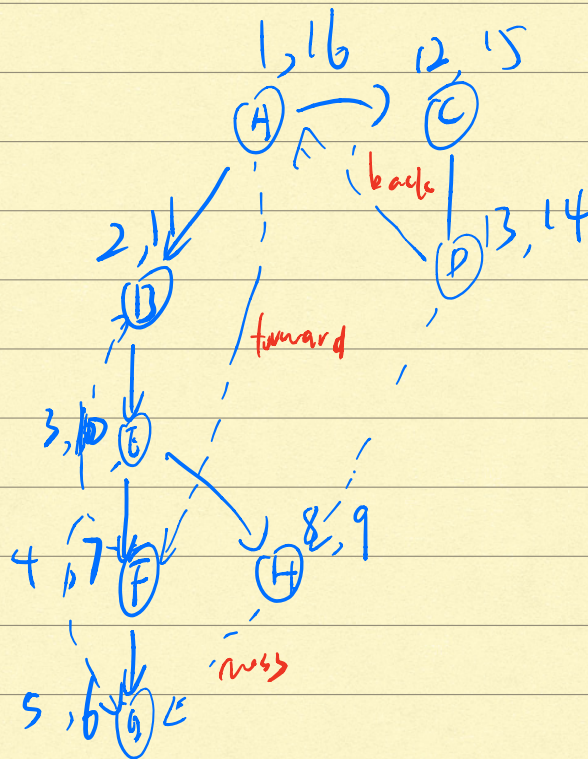 1,16 12,15
A C
back
2,11 D 13,14
B
forward
3,10 E
8,9
4,7 F H
cross
5,6 G